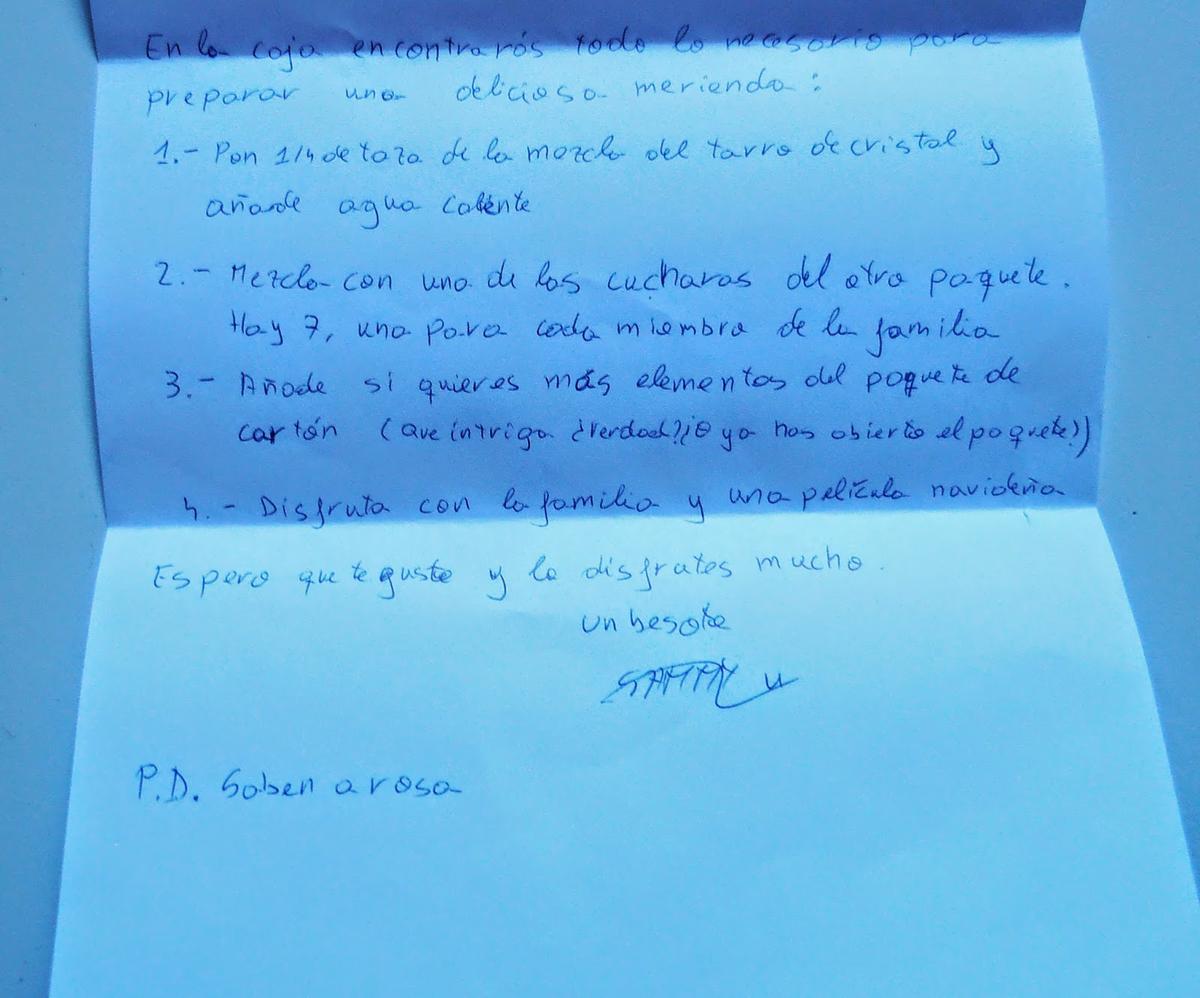 En la caja encontrarás todo lo necesario para
preparar una deliciosa merienda:
1.- Pon 1/4 de taza de la mezcla del tarro de cristal y
añade agua caliente
2.- Mezcla con una de las cucharas del otro paquete.
Hay 7, una para cada miembro de la familia
3.- Añade si quieres más elementos del paquete de
cartón (Que intriga ¿Verdad? ¡O ya has abierto el paquete!)
4.- Disfruta con la familia y una película navideña
Espero que te guste y lo disfrutes mucho.
Un besote
P.D. Saben a rosa